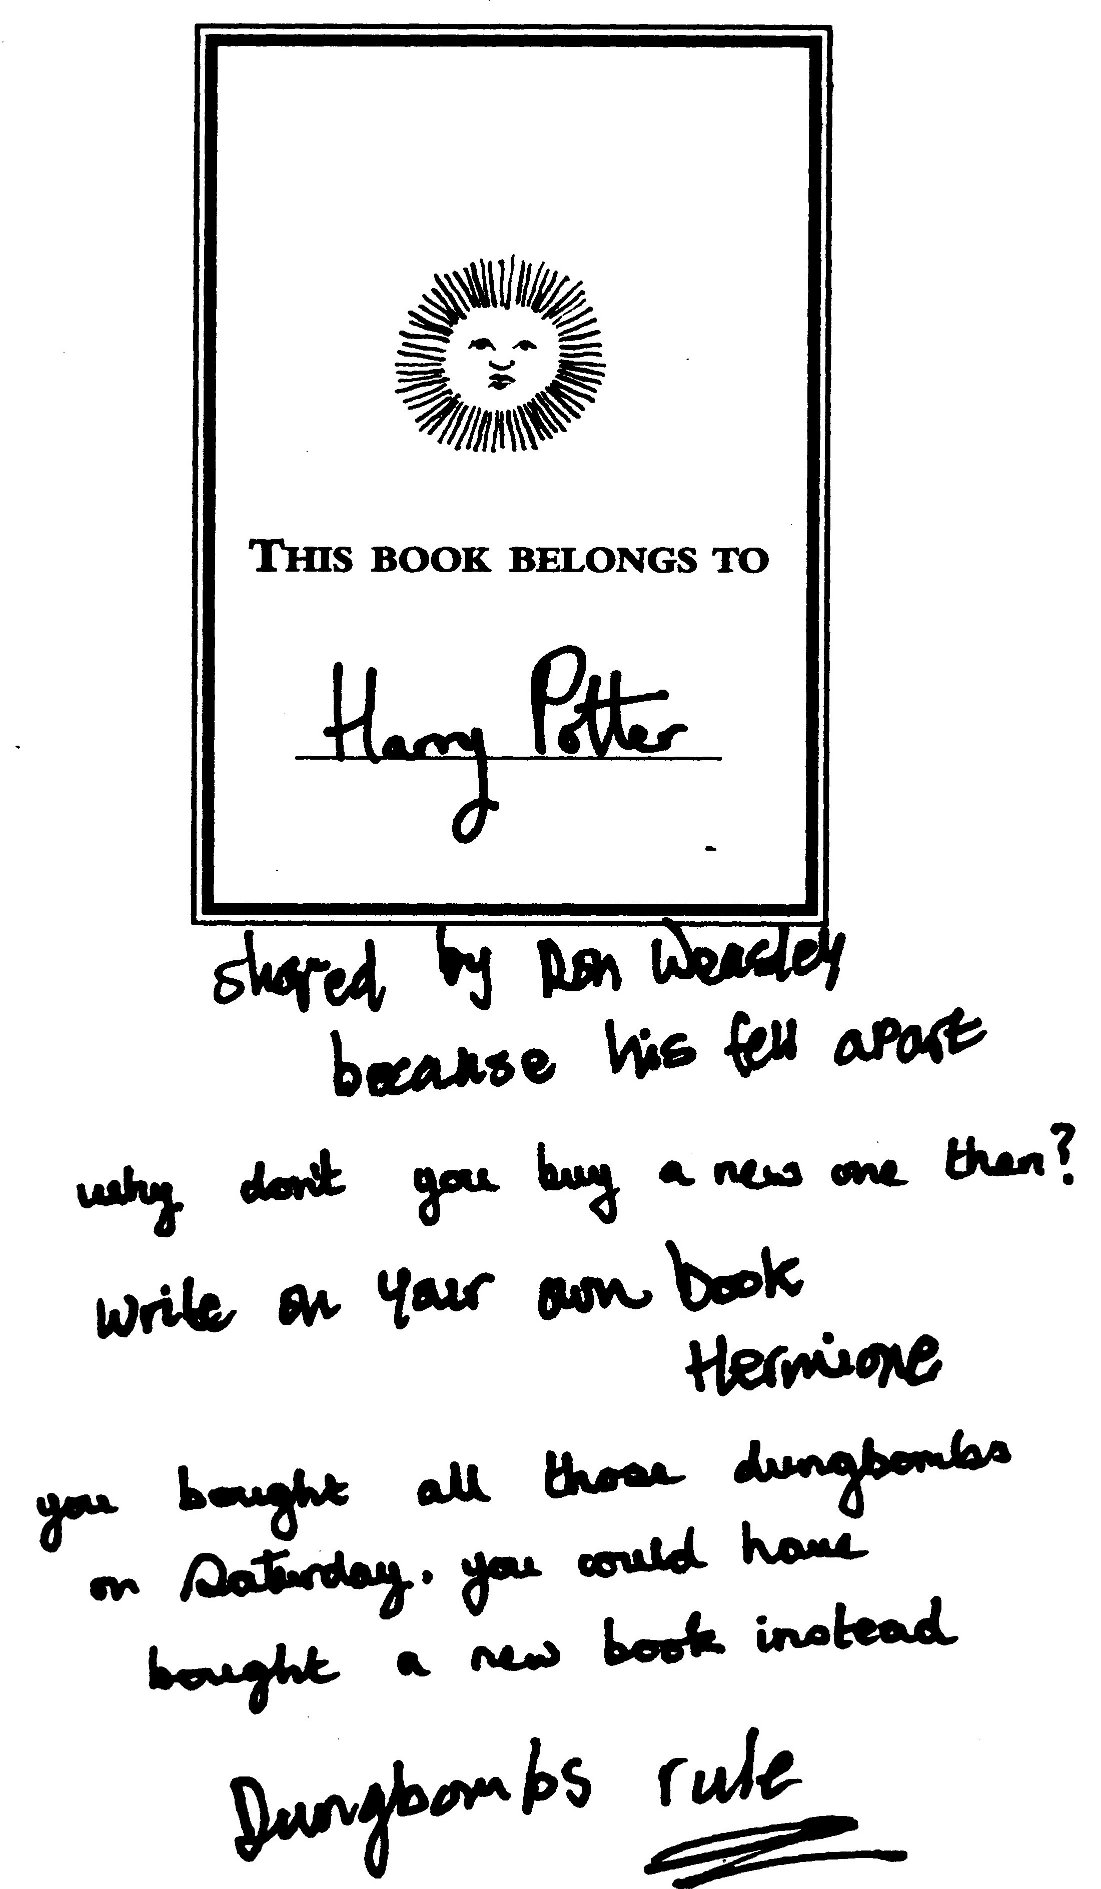 THIS BOOK BELONGS TO
Harry Potter
shared by Ron Weasley
because his fell apart
why don't you buy a new one then?
write on your own book
Hermione
you bought all those dungbombs
on Saturday. you could have
bought a new book instead
Dungbombs rule